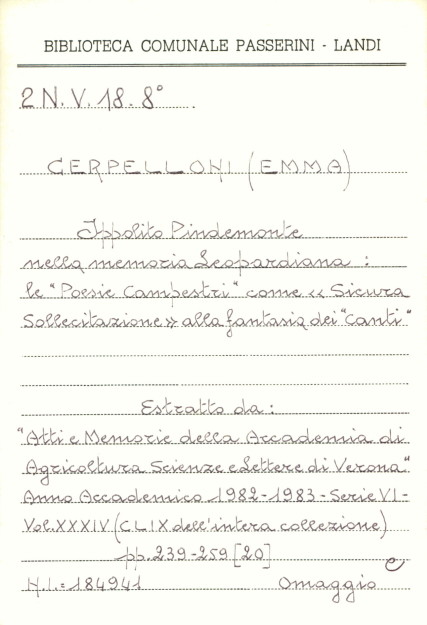 BIBLIOTECA COMUNALE PASSERINI - LANDI
2 N. V. 18. 8°
CERPELLONI (EMMA)
Ippolito Pindemonte
nella memoria Leopardiana :
le "Poesie Campestri" come « Sicura
Sollecitazione » alla fantasia dei "Canti"
Estratto da :
"Atti e Memorie della Accademia di
Agricoltura Scienze e Lettere di Verona"
Anno Accademico 1982-1983 - Serie VI -
Vol. XXXIV (CLIX dell'intera collezione)
pp. 239-259 [20]
N.I.= 184941 Omaggio